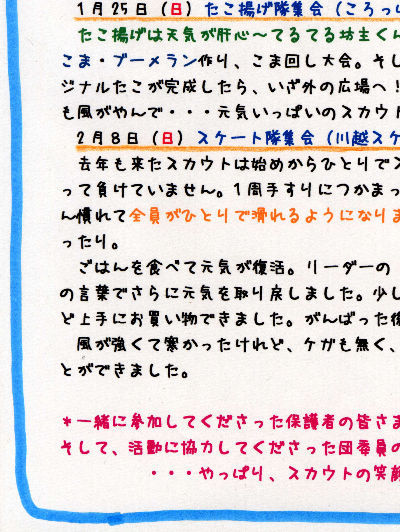 1月25日（日）たこ揚げ隊集会（ころっ
たこ揚げは天気が肝心～てるてる坊主くん
こま・ブーメラン作り、こま回し大会。そし
ジナルたこが完成したら、いざ外の広場へ！
も風がやんで・・・元気いっぱいのスカウト
2月8日（日）スケート隊集会（川越スケ
去年も来たスカウトは始めからひとりでス
って負けていません。1周手すりにつかまっ
ん慣れて全員がひとりで滑れるようになりま
ったり。
ごはんを食べて元気が復活。リーダーの
の言葉でさらに元気を取り戻しました。少し
ど上手にお買い物できました。がんばった後
風が強くて寒かったけれど、ケガも無く、
とができました。
＊一緒に参加してくださった保護者の皆さま
そして、活動に協力してくださった団委員の
・・・やっぱり、スカウトの笑顔